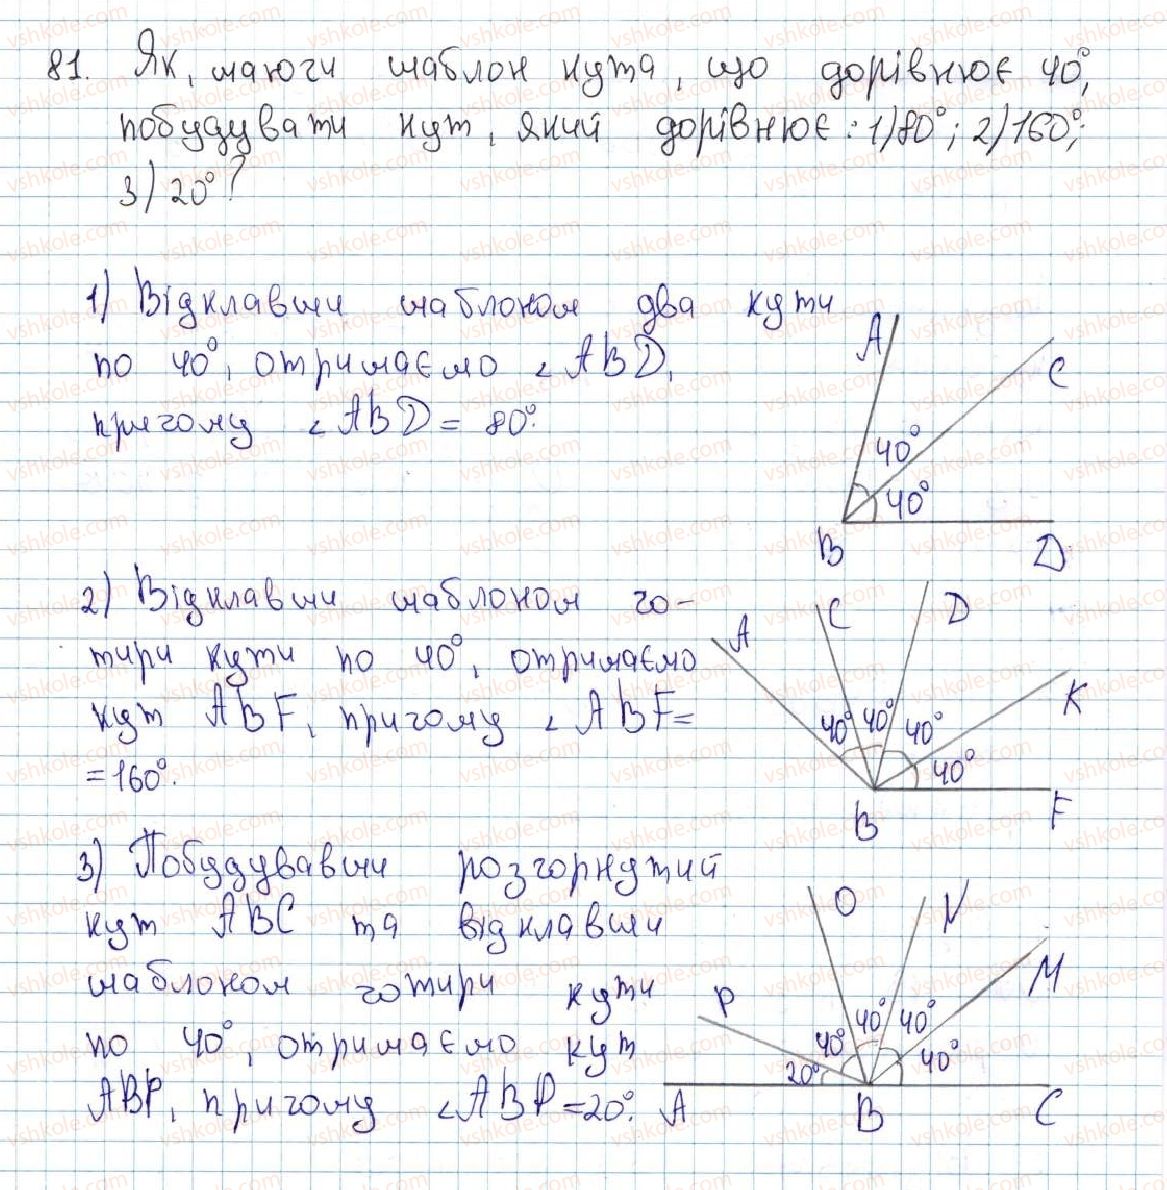 81. Як, маючи шаблон кута, що дорівнює 40°,
побудувати кут, який дорівнює: 1) 80°; 2) 160°;
3) 20°?
1) Відклавши шаблоном два кути
по 40°, отримаємо ∠ABD,
причому ∠ABD = 80°.
A
C
40°
40°
B
D
2) Відклавши шаблоном чо-
тири кути по 40°, отримаємо
кут ABF, причому ∠ABF =
= 160°.
A
C
D
K
40° 40° 40°
40°
B
F
3) Побудувавши розгорнутий
кут ABC та відклавши
шаблоном чотири кути
по 40°, отримаємо кут
ABP, причому ∠ABP = 20°.
O
N
M
P
40° 40° 40°
20°
40°
A
B
C
vshkole.com